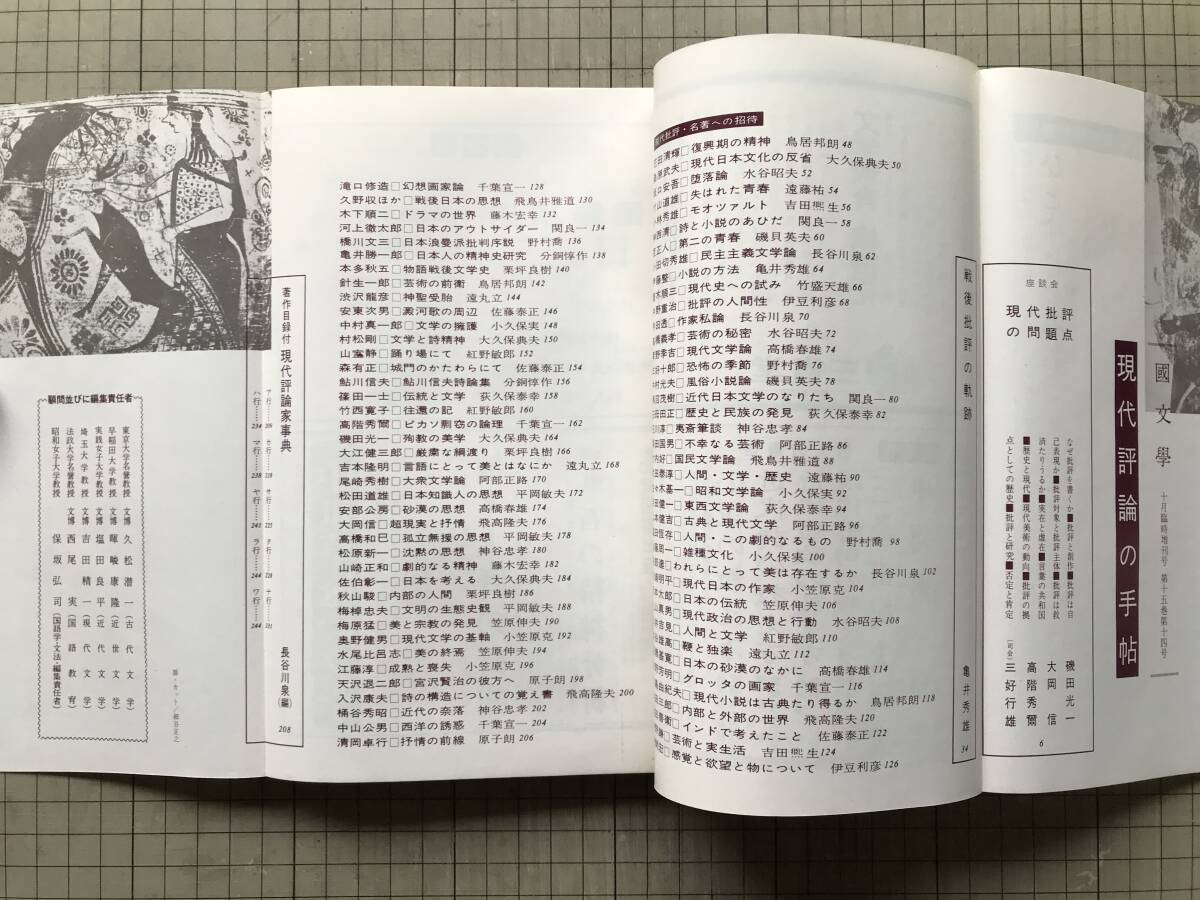 國文學
十月臨時増刊号 第十五巻第十四号
現代評論の手帖
座談会
現代批評
の問題点
なぜ批評を書くか■批評と創作■批評は自
己表現か■批評対象と批評主体■批評は救
済たりうるか■実在と虚在■言葉の共和国
■歴史と現代■現代美術の動向■批評の拠
点としての歴史■批評と研究■否定と肯定
磯田光一
大岡信
高階秀爾
〔司会〕三好行雄
6
戦後批評の軌跡
亀井秀雄
34
現代批評・名著への招待
田清輝□復興期の精神 鳥居邦朗 48
原武夫□現代日本文化の反省 大久保典夫 50
口安吾□堕落論 水谷昭夫 52
山道雄□失はれた青春 遠藤祐 54
林秀雄□モオツァルト 吉田煕生 56
西清□詩と小説のあひだ 関良一 58
正人□第二の青春 磯貝英夫 60
田切秀雄□民主主義文学論 長谷川泉 62
藤整□小説の方法 亀井秀雄 64
木順三□現代史への試み 竹盛天雄 66
野重治□批評の人間性 伊豆利彦 68
田透□作家私論 長谷川泉 70
橋義孝□芸術の秘密 水谷昭夫 72
野季吉□現代文学論 高橋春雄 74
田十郎□恐怖の季節 野村喬 76
村光夫□風俗小説論 磯貝英夫 78
田茂樹□近代日本文学のなりたち 関良一 80
田正□歴史と民族の発見 荻久保泰幸 82
川淳□夷斎筆談 神谷忠孝 84
田国男□不幸なる芸術 阿部正路 86
内好□国民文学論 飛鳥井雅道 88
田泰淳□人間・文学・歴史 遠藤祐 90
々木基一□昭和文学論 小久保実 92
田健一□東西文学論 荻久保泰幸 94
本健吉□古典と現代文学 阿部正路 96
田恆存□人間・この劇的なるもの 野村喬 98
藤周一□雑種文化 小久保実 100
達□われらにとって美は存在するか 長谷川泉 102
明平□現代日本の作家 小笠原克 104
本太郎□日本の伝統 笠原伸夫 106
山真男□現代政治の思想と行動 水谷昭夫 108
井吉見□人間と文学 紅野敏郎 110
雄高□鞭と独楽 遠丸立 112
基寛□日本の砂漠のなかに 高橋春雄 114
野秀明□グロッタの画家 千葉宣一 116
由紀夫□現代小説は古典たり得るか 鳥居邦朗 118
三郎□内部と外部の世界 飛高隆夫 120
善衛□インドで考えたこと 佐藤泰正 122
謙□芸術と実生活 吉田煕生 124
宏□感覚と欲望と物について 伊豆利彦 126
滝口修造□幻想画家論 千葉宣一 128
久野収ほか□戦後日本の思想 飛鳥井雅道 130
木下順二□ドラマの世界 藤木宏幸 132
河上徹太郎□日本のアウトサイダー 関良一 134
橋川文三□日本浪曼派批判序説 野村喬 136
亀井勝一郎□日本人の精神史研究 分銅惇作 138
本多秋五□物語戦後文学史 栗坪良樹 140
針生一郎□芸術の前衛 鳥居邦朗 142
渋沢龍彦□神聖受胎 遠丸立 144
安東次男□澱河歌の周辺 佐藤泰正 146
中村真一郎□文学の擁護 小久保実 148
村松剛□文学と詩精神 大久保典夫 150
山室静□踊り場にて 紅野敏郎 152
森有正□城門のかたわらにて 佐藤泰正 154
鮎川信夫□鮎川信夫詩論集 分銅惇作 156
篠田一士□伝統と文学 荻久保泰幸 158
竹西寛子□往還の記 紅野敏郎 160
高階秀爾□ピカソ剽窃の論理 千葉宣一 162
磯田光一□殉教の美学 大久保典夫 164
大江健三郎□厳粛な綱渡り 栗坪良樹 166
吉本隆明□言語にとって美とはなにか 遠丸立 168
尾崎秀樹□大衆文学論 阿部正路 170
松田道雄□日本知識人の思想 平岡敏夫 172
安部公房□砂漠の思想 高橋春雄 174
大岡信□超現実と抒情 飛高隆夫 176
高橋和巳□孤立無援の思想 平岡敏夫 178
松原新一□沈黙の思想 神谷忠孝 180
山崎正和□劇的なる精神 藤木宏幸 182
佐伯彰一□日本を考える 大久保典夫 184
秋山駿□内部の人間 栗坪良樹 186
梅棹忠夫□文明の生態史観 平岡敏夫 188
梅原猛□美と宗教の発見 笠原伸夫 190
奥野健男□現代文学の基軸 小笠原克 192
水尾比呂志□美の終焉 笠原伸夫 194
江藤淳□成熟と喪失 小笠原克 196
天沢退二郎□宮沢賢治の彼方へ 原子朗 198
入沢康夫□詩の構造についての覚え書 飛高隆夫 200
桶谷秀昭□近代の奈落 神谷忠孝 202
中山公男□西洋の誘惑 千葉宣一 204
清岡卓行□抒情の前線 原子朗 206
著作目録付 現代評論家事典
ア行……209 カ行……218 サ行……225 タ行……228 ナ行……231
ハ行……234 マ行……238 ヤ行……241 ラ行……244 ワ行……244
長谷川泉(編)
208
扉・カット/細谷正之
顧問並びに編集責任者
東京大学名誉教授 文博 久松潜一(古代文学)
早稲田大学教授 文博 暉峻康隆(近世文学)
実践女子大学教授 塩田良平(近代文学)
埼玉大学教授 文博 吉田精一(現代文学)
法政大学名誉教授 文博 西尾実(国語教育)
昭和女子大学教授 保坂弘司(国語学・文法・編集責任者)